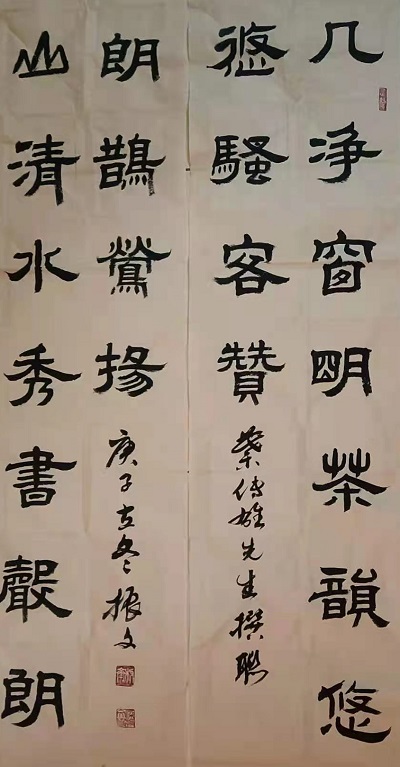 几净窗明茶韻悠
悠騷客贊
葉傳雄先生撰聯
山清水秀書聲朗
朗鵲鶯揚
庚子吉冬振文